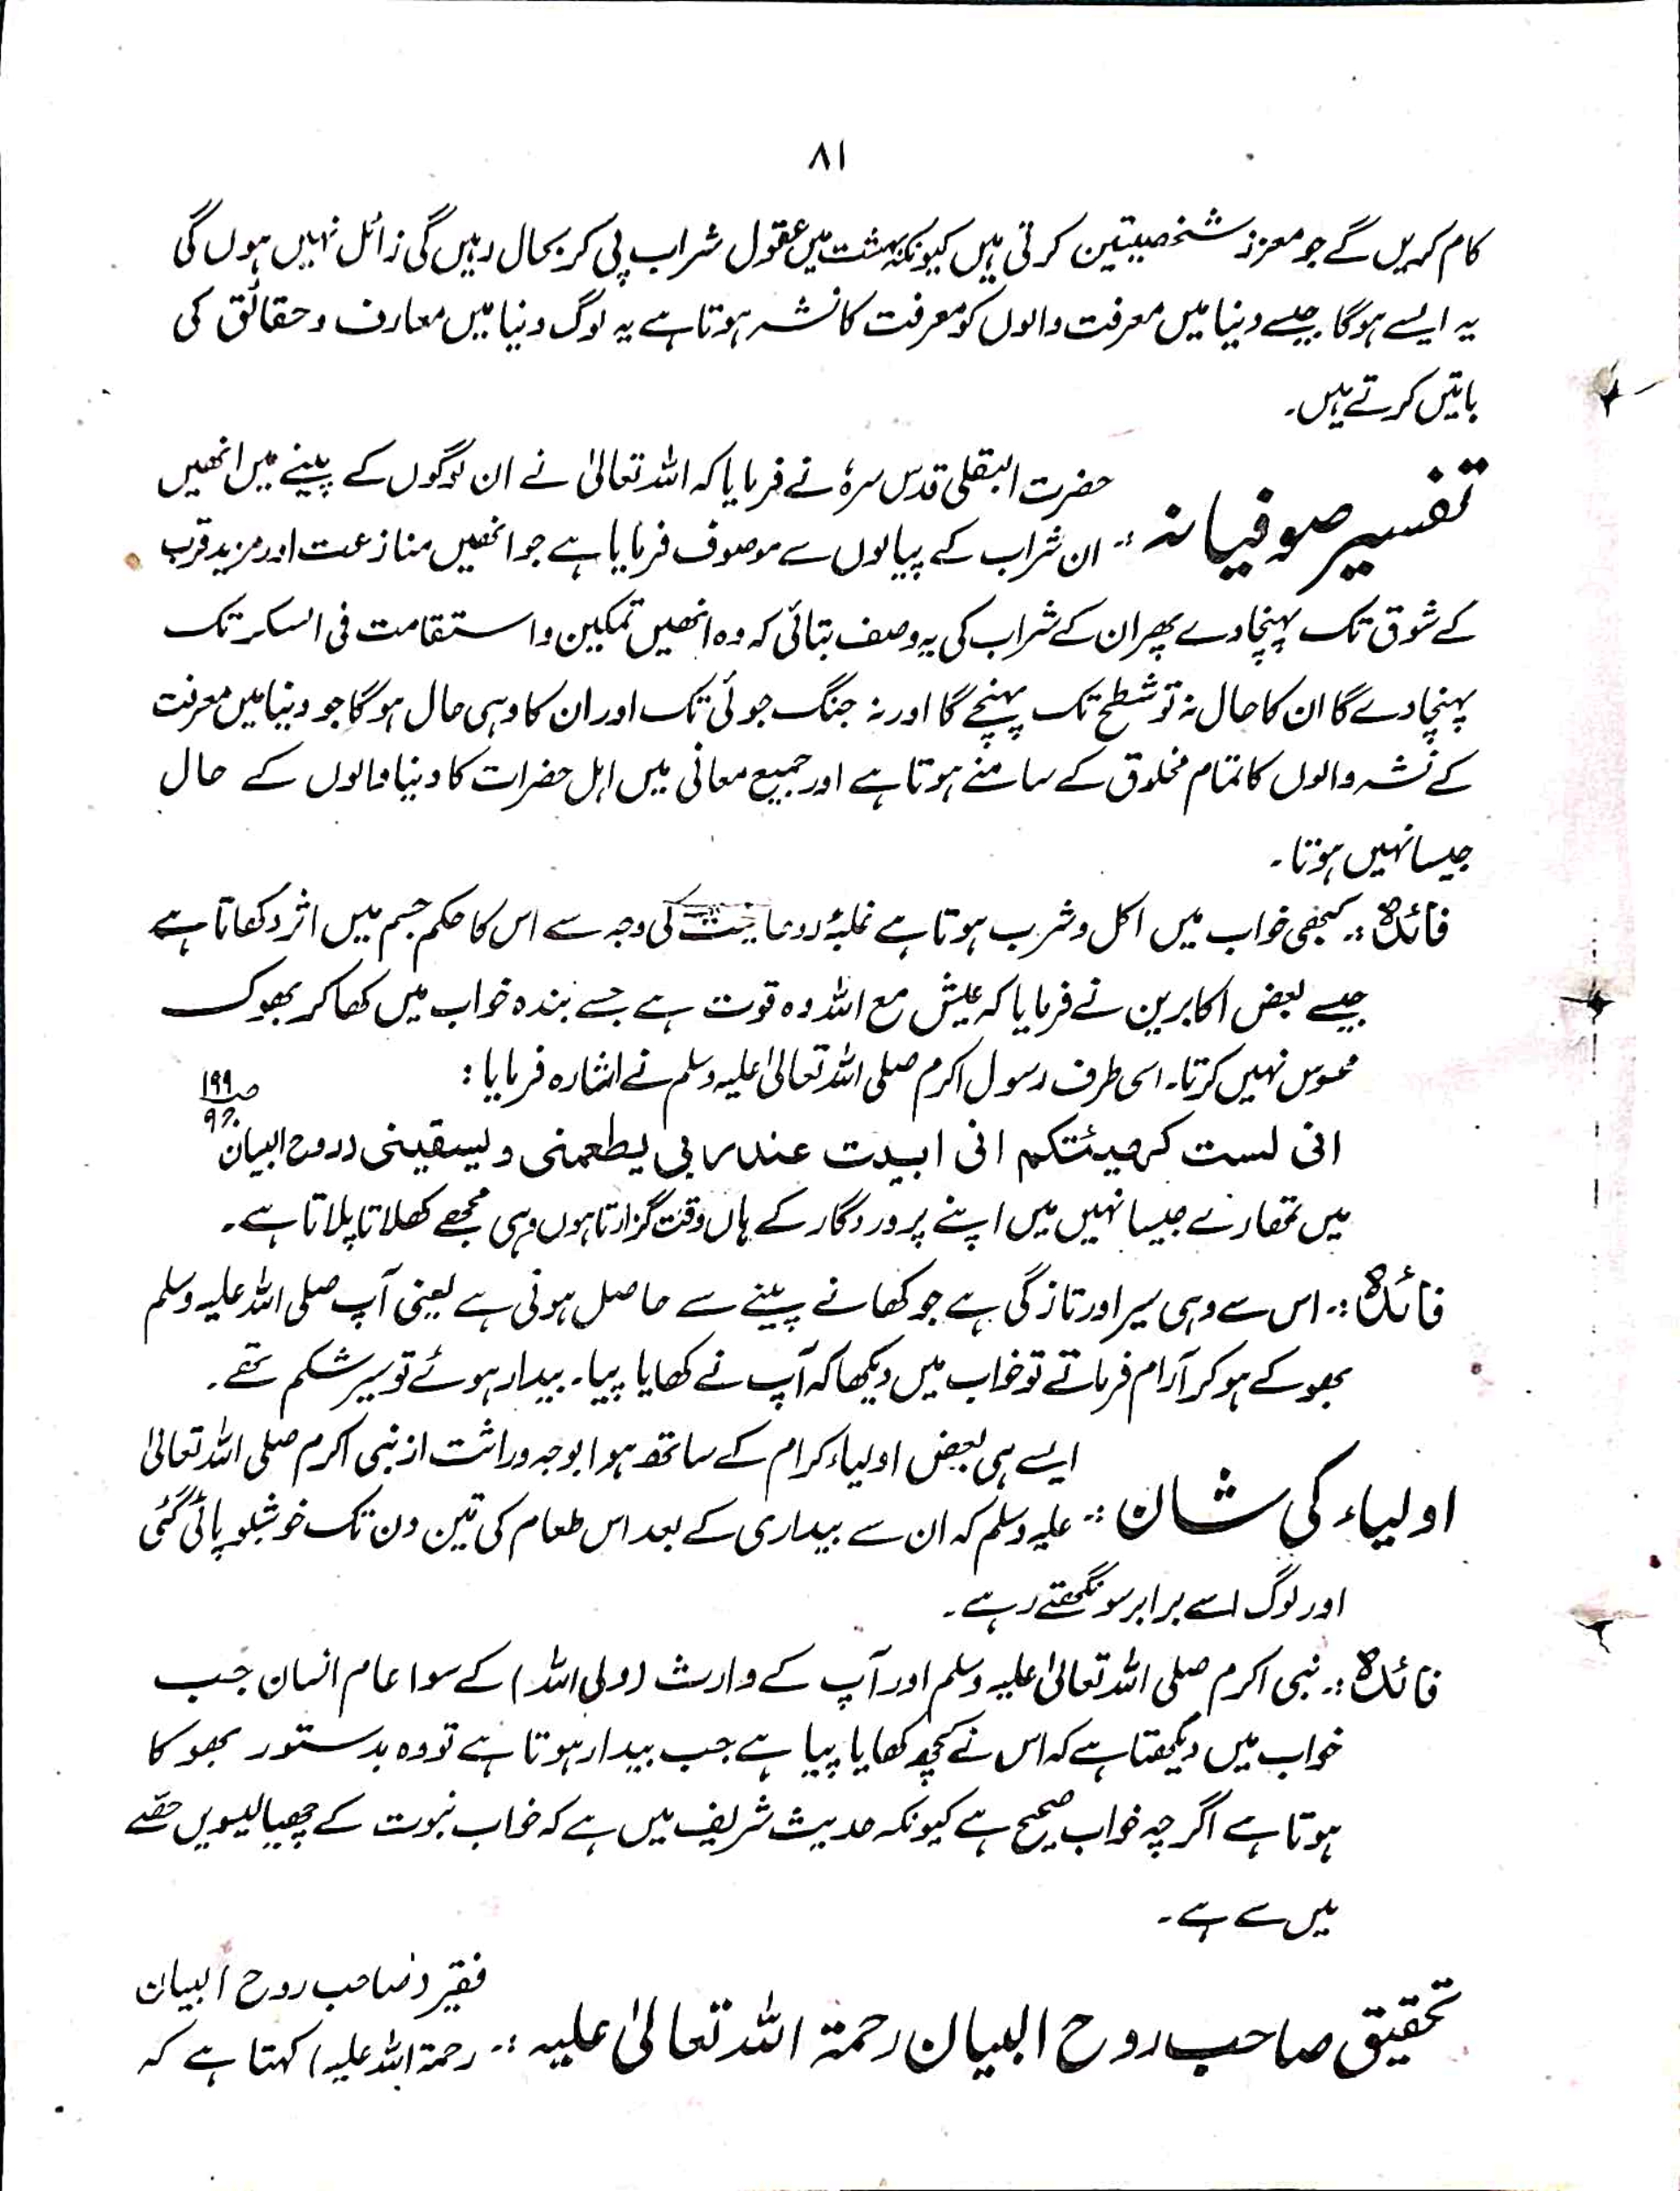 ۸۱
کام کریں گے جو معزز شخصیتیں کرتی ہیں کیونکہ بہشت میں عقول شراب پی کر بحال رہیں گی زائل نہیں ہوں گی
یہ ایسے ہوگا جیسے دنیا میں معرفت والوں کو معرفت کا نشہ ہوتا ہے یہ لوگ دنیا میں معارف وحقائق کی
باتیں کرتے ہیں۔
تفسیر صوفیانہ :- حضرت البقلی قدس سرہٗ نے فرمایا کہ اللہ تعالیٰ نے ان لوگوں کے پینے میں انھیں
ان شراب کے پیالوں سے موصوف فرمایا ہے جو انھیں منازعت اور مزید قرب
کے شوق تک پہنچا دے پھر ان کے شراب کی یہ وصف بتائی کہ وہ انھیں تمکین و استقامت فی السکر تک
پہنچا دے گا ان کا حال نہ تو شطح تک پہنچے گا اور نہ جنگ جوئی تک اور ان کا وہی حال ہوگا جو دنیا میں معرفت
کے نشہ والوں کا تمام مخلوق کے سامنے ہوتا ہے اور جمیع معانی میں اہل حضرات کا دنیا والوں کے حال
جیسا نہیں ہوتا۔
فائدہ :- کبھی خواب میں اکل و شرب ہوتا ہے غلبۂ روحانیت کی وجہ سے اس کا حکم جسم میں اثر دکھاتا ہے
جیسے بعض اکابرین نے فرمایا کہ عیش مع اللہ وہ قوت ہے جسے بندہ خواب میں کھا کر بھوک
محسوس نہیں کرتا۔ اسی طرف رسول اکرم صلی اللہ تعالیٰ علیہ وسلم نے اشارہ فرمایا :
انی لست کہیئتکم انی ابیت عند ربی یطعمنی ویسقینی (روح البیان ص ۱۹۹ ج ۹)
میں تمھارے جیسا نہیں میں اپنے پروردگار کے ہاں وقت گزارتا ہوں وہی مجھے کھلاتا پلاتا ہے۔
فائدہ :- اس سے وہی سیر اور تازگی ہے جو کھانے پینے سے حاصل ہوتی ہے یعنی آپ صلی اللہ علیہ وسلم
بھوکے ہو کر آرام فرماتے تو خواب میں دیکھا کہ آپ نے کھایا پیا۔ بیدار ہوئے تو سیر شکم تھے۔
اولیاء کی شان :- ایسے ہی بعض اولیاء کرام کے ساتھ ہوا بوجہ وراثت از نبی اکرم صلی اللہ تعالیٰ
علیہ وسلم کہ ان سے بیداری کے بعد اس طعام کی تین دن تک خوشبو پائی گئی
اور لوگ اسے برابر سونگھتے رہے۔
فائدہ :- نبی اکرم صلی اللہ تعالیٰ علیہ وسلم اور آپ کے وارث (ولی اللہ) کے سوا عام انسان جب
خواب میں دیکھتا ہے کہ اس نے کچھ کھایا پیا ہے جب بیدار ہوتا ہے تو وہ بدستور بھوکا
ہوتا ہے اگرچہ خواب صحیح ہے کیونکہ حدیث شریف میں ہے کہ خواب نبوت کے چھیالیسویں حصّے
میں سے ہے۔
تحقیق صاحب روح البیان رحمۃ اللہ تعالیٰ علیہ :- فقیر (صاحب روح البیان
رحمۃ اللہ علیہ) کہتا ہے کہ